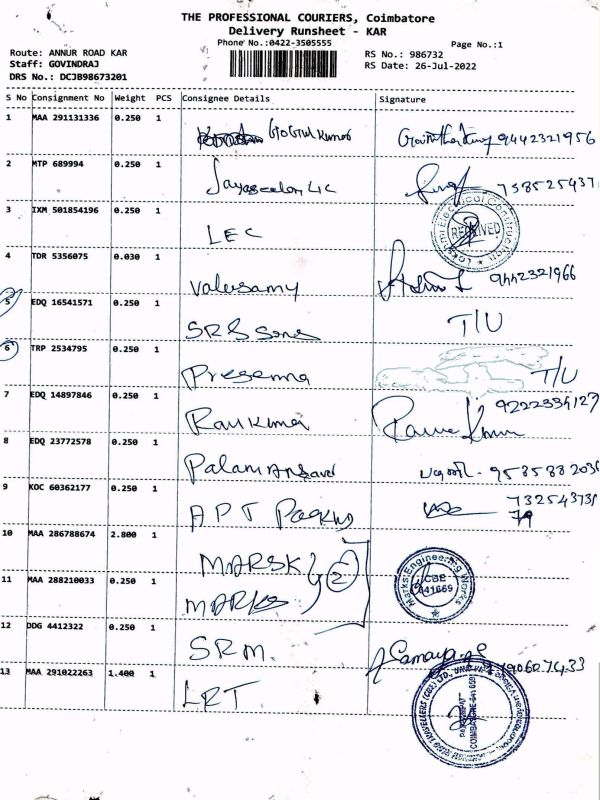 THE PROFESSIONAL COURIERS, Coimbatore
Delivery Runsheet - KAR
Phone No.:0422-3505555
Page No.:1
Route: ANNUR ROAD KAR
Staff: GOVINDRAJ
DRS No.: DCJB98673201
RS No.: 986732
RS Date: 26-Jul-2022
S No Consignment No Weight PCS Consignee Details Signature
1 MAA 291131336 0.250 1 Gokul Kumar 9442321956
2 MTP 689994 0.250 1 LIC
3 IXM 501854196 0.250 1 LEC
Lakshmi Electrical Construction RECEIVED
4 TDR 5356075 0.030 1 Valusamy 9442321966
5 EDQ 16541571 0.250 1 SRS Sons T/U
6 TRP 2534795 0.250 1 Presenna T/U
7 EDQ 14897846 0.250 1 Ramkumar
8 EDQ 23772578 0.250 1 பழனி -
9 KOC 60362177 0.250 1 APT
79
10 MAA 286788674 2.800 1 MARSK
11 MAA 288210033 0.250 1 MARKS
2
Marks Engineering Works CBE 641659
12 DDG 4412322 0.250 1 SRM.
13 MAA 291022263 1.400 1 LRT